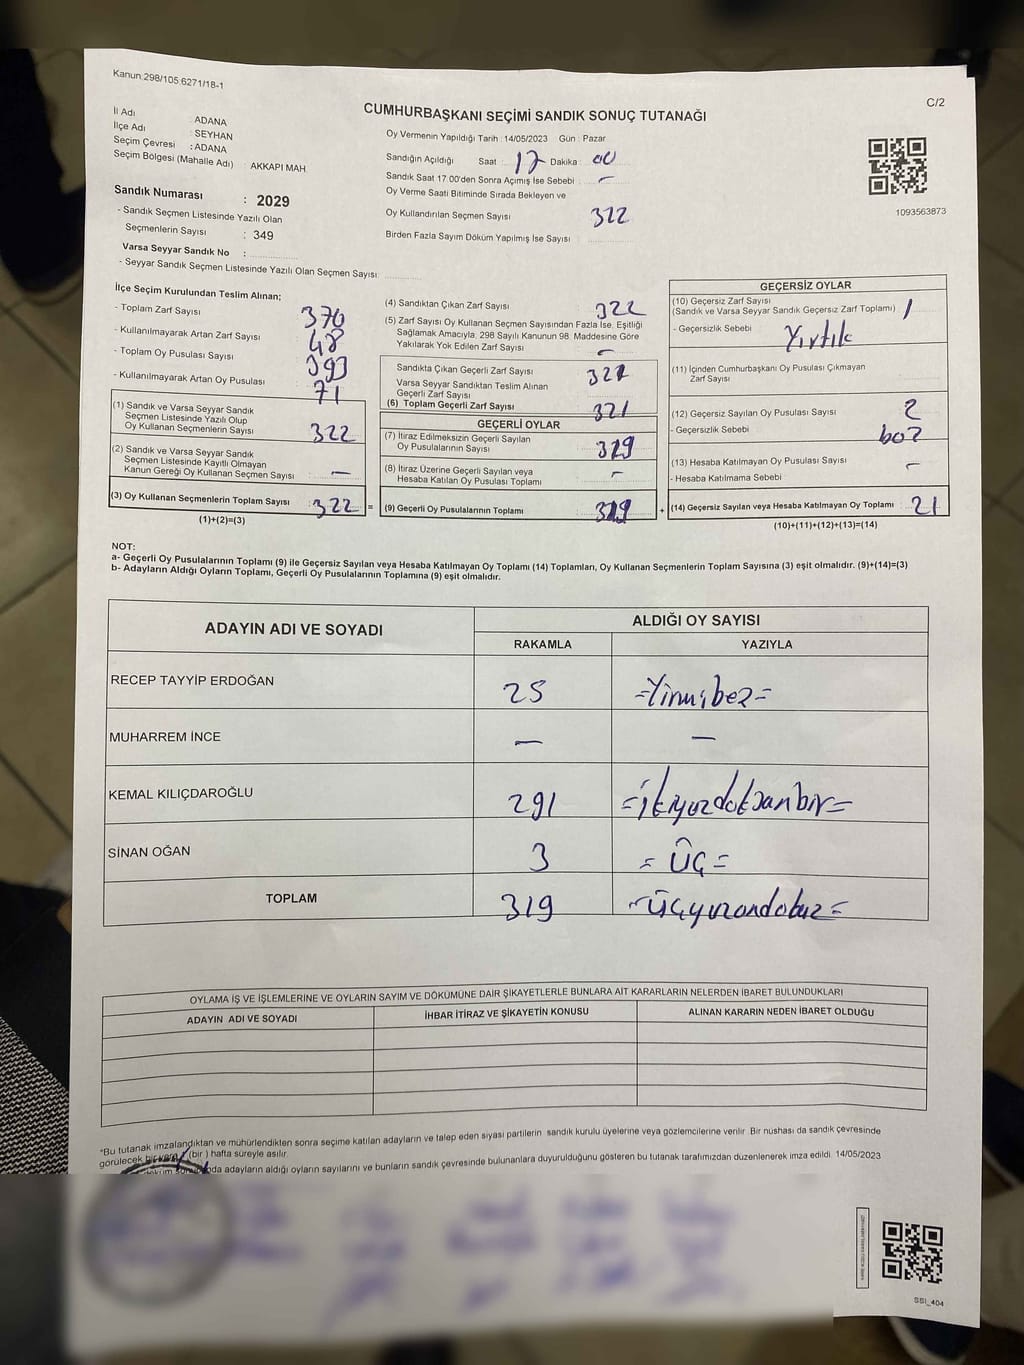 Kanun:298/105 6271/18-1
C/2
CUMHURBAŞKANI SEÇİMİ SANDIK SONUÇ TUTANAĞI
İl Adı : ADANA
İlçe Adı : SEYHAN
Seçim Çevresi : ADANA
Seçim Bölgesi (Mahalle Adı) : AKKAPI MAH
Sandık Numarası : 2029
- Sandık Seçmen Listesinde Yazılı Olan
Seçmenlerin Sayısı : 349
Varsa Seyyar Sandık No :
- Seyyar Sandık Seçmen Listesinde Yazılı Olan Seçmen Sayısı:
Oy Vermenin Yapıldığı Tarih : 14/05/2023 Gün : Pazar
Sandığın Açıldığı Saat : 17 Dakika : 00
Sandık Saat 17.00'den Sonra Açımış İse Sebebi : -
Oy Verme Saati Bitiminde Sırada Bekleyen ve
Oy Kullandırılan Seçmen Sayısı 322
Birden Fazla Sayım Döküm Yapılmış İse Sayısı :
1093563873
İlçe Seçim Kurulundan Teslim Alınan;
- Toplam Zarf Sayısı 370
- Kullanılmayarak Artan Zarf Sayısı 48
- Toplam Oy Pusulası Sayısı 393
- Kullanılmayarak Artan Oy Pusulası 71
(1) Sandık ve Varsa Seyyar Sandık
Seçmen Listesinde Yazılı Olup
Oy Kullanan Seçmenlerin Sayısı 322
(2) Sandık ve Varsa Seyyar Sandık
Seçmen Listesinde Kayıtlı Olmayan
Kanun Gereği Oy Kullanan Seçmen Sayısı -
(3) Oy Kullanan Seçmenlerin Toplam Sayısı 322 =
(1)+(2)=(3)
(4) Sandıktan Çıkan Zarf Sayısı 322
(5) Zarf Sayısı Oy Kullanan Seçmen Sayısından Fazla İse, Eşitliği
Sağlamak Amacıyla, 298 Sayılı Kanunun 98. Maddesine Göre
Yakılarak Yok Edilen Zarf Sayısı -
Sandıkta Çıkan Geçerli Zarf Sayısı 321
Varsa Seyyar Sandıktan Teslim Alınan
Geçerli Zarf Sayısı
(6) Toplam Geçerli Zarf Sayısı 321
GEÇERLİ OYLAR
(7) İtiraz Edilmeksizin Geçerli Sayılan
Oy Pusulalarının Sayısı 319
(8) İtiraz Üzerine Geçerli Sayılan veya
Hesaba Katılan Oy Pusulası Toplamı -
(9) Geçerli Oy Pusulalarının Toplamı 319 +
GEÇERSİZ OYLAR
(10) Geçersiz Zarf Sayısı
(Sandık ve Varsa Seyyar Sandık Geçersiz Zarf Toplamı) 1
- Geçersizlik Sebebi Yırtık
(11) İçinden Cumhurbaşkanı Oy Pusulası Çıkmayan
Zarf Sayısı
(12) Geçersiz Sayılan Oy Pusulası Sayısı 2
- Geçersizlik Sebebi boş
(13) Hesaba Katılmayan Oy Pusulası Sayısı -
- Hesaba Katılmama Sebebi
(14) Geçersiz Sayılan veya Hesaba Katılmayan Oy Toplamı 21
(10)+(11)+(12)+(13)=(14)
NOT:
a- Geçerli Oy Pusulalarının Toplamı (9) ile Geçersiz Sayılan veya Hesaba Katılmayan Oy Toplamı (14) Toplamları, Oy Kullanan Seçmenlerin Toplam Sayısına (3) eşit olmalıdır. (9)+(14)=(3)
b- Adayların Aldığı Oyların Toplamı, Geçerli Oy Pusulalarının Toplamına (9) eşit olmalıdır.
ADAYIN ADI VE SOYADI ALDIĞI OY SAYISI
RAKAMLA YAZIYLA
RECEP TAYYİP ERDOĞAN 25 =Yirmibeş=
MUHARREM İNCE - -
KEMAL KILIÇDAROĞLU 291 =ikiyuzdoksanbir=
SİNAN OĞAN 3 = ÜÇ =
TOPLAM 319 =üçyuzondokuz=
OYLAMA İŞ VE İŞLEMLERİNE VE OYLARIN SAYIM VE DÖKÜMÜNE DAİR ŞİKAYETLERLE BUNLARA AİT KARARLARIN NELERDEN İBARET BULUNDUKLARI
ADAYIN ADI VE SOYADI İHBAR İTİRAZ VE ŞİKAYETİN KONUSU ALINAN KARARIN NEDEN İBARET OLDUĞU
*Bu tutanak imzalandıktan ve mühürlendikten sonra seçime katılan adayların ve talep eden siyasi partilerin sandık kurulu üyelerine veya gözlemcilerine verilir. Bir nüshası da sandık çevresinde
görülecek bir yere (bir) hafta süreyle asılır.
da adayların aldığı oyların sayılarını ve bunların sandık çevresinde bulunanlara duyurulduğunu gösteren bu tutanak tarafımızdan düzenlenerek imza edildi. 14/05/2023
SSI_404